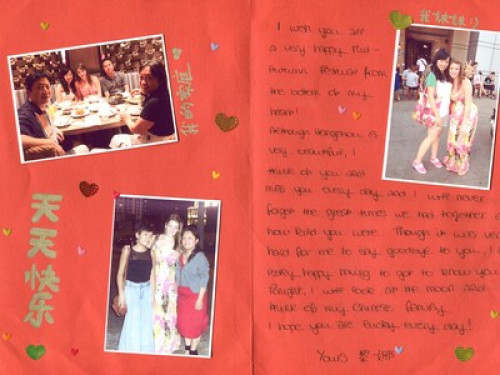 我的家庭
天天快乐
I wish you all
a very happy Mid-
Autumn Festival from
the bottom of my
heart!
Although Hangzhou is
very beautiful, I
think of you and
miss you every day and I will never
forget the great times we had together
how kind you were. Though it was very
hard for me to say goodbye to you, I
really happy having to got to know you
Tonight, I will look at the moon and
think of my Chinese family.
I hope you are lucky every day!
Yours